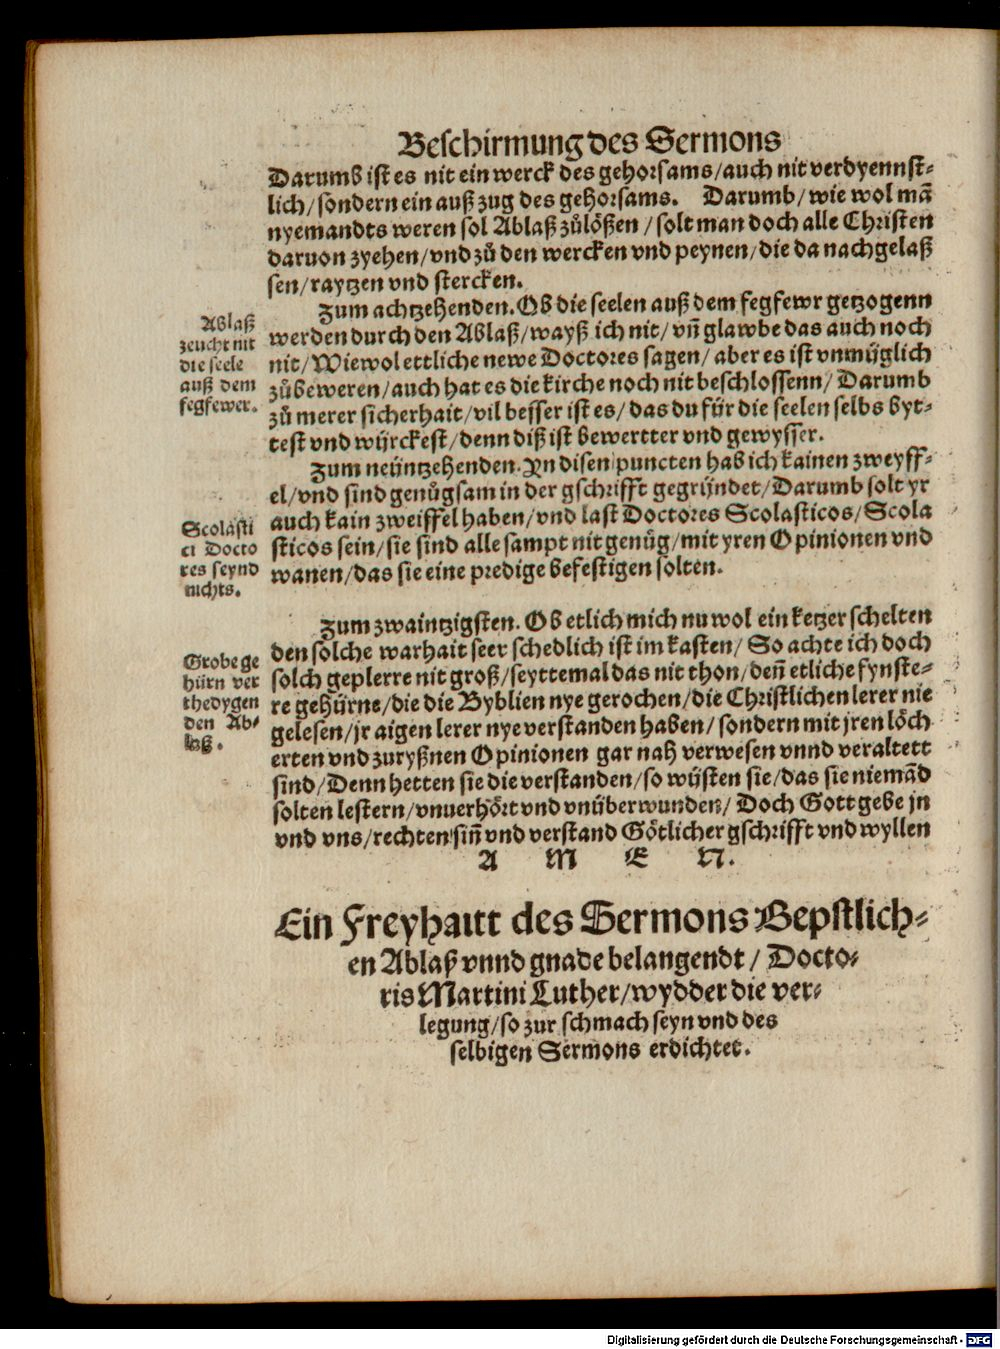 Beschirmung des Sermons
Darumb ist es nit ein werck des gehorsams/auch nit verdyennst⸗
lich/sondern ein auß zug des gehorsams. Darumb/wie wol mā
nyemandts weren sol Ablaß zůlößen/solt man doch alle Christen
daruon zyehen/vnd zů den wercken vnd peynen/die da nachgelaß
sen/raytzen vnd stercken.
Zum achtzehenden. Ob die seelen auß dem fegfewr getzogenn
werden durch den Ablaß/wayß ich nit/vñ glawbe das auch noch
nit/Wiewol ettliche newe Doctores sagen/aber es ist vnmüglich
zůbeweren/auch hat es die kirche noch nit beschlossenn/Darumb
zů merer sicherhait/vil besser ist es/das du für die seelen selbs byt⸗
test vnd würckest/denn diß ist bewertter vnd gewysser.
Ablaß
zeucht nit
die seele
auß dem
fegfewer.
Zum neüntzehenden. Yn disen puncten hab ich kainen zweyff⸗
el/vnd sind genůgsam in der gschrifft gegründet/Darumb solt yr
auch kain zweiffel haben/vnd last Doctores Scolasticos/Scola
sticos sein/sie sind alle sampt nit genůg/mit yren Opinionen vnd
wanen/das sie eine predige befestigen solten.
Scolasti
ci Docto
res seynd
nichts.
Zum zwaintzigsten. Ob etlich mich nu wol ein ketzer schelten
den solche warhait seer schedlich ist im kasten/So achte ich doch
solch geplerre nit groß/seyttemal das nit thon/deñ etliche fynste⸗
re gehürne/die die Byblien nye gerochen/die Christlichen lerer nie
gelesen/jr aigen lerer nye verstanden haben/sondern mit jren löch
erten vnd zuryßnen Opinionen gar nah verwesen vnnd veraltett
sind/Denn hetten sie die verstanden/so wüsten sie/das sie niemād
solten lestern/vnuerhört vnd vnüberwunden/Doch Gott gebe jn
vnd vns/rechten siñ vnd verstand Götlicher gschrifft vnd wyllen
A M E N.
Grobe ge
hürn ver
thedygen
den Ab⸗
laß.
Ein Freyhaitt des Sermons Bepstlich⸗
en Ablaß vnnd gnade belangendt/Docto⸗
ris Martini Luther/wydder die ver⸗
legung/so zur schmach seyn vnd des
selbigen Sermons erdichtet.
Digitalisierung gefördert durch die Deutsche Forschungsgemeinschaft - DFG